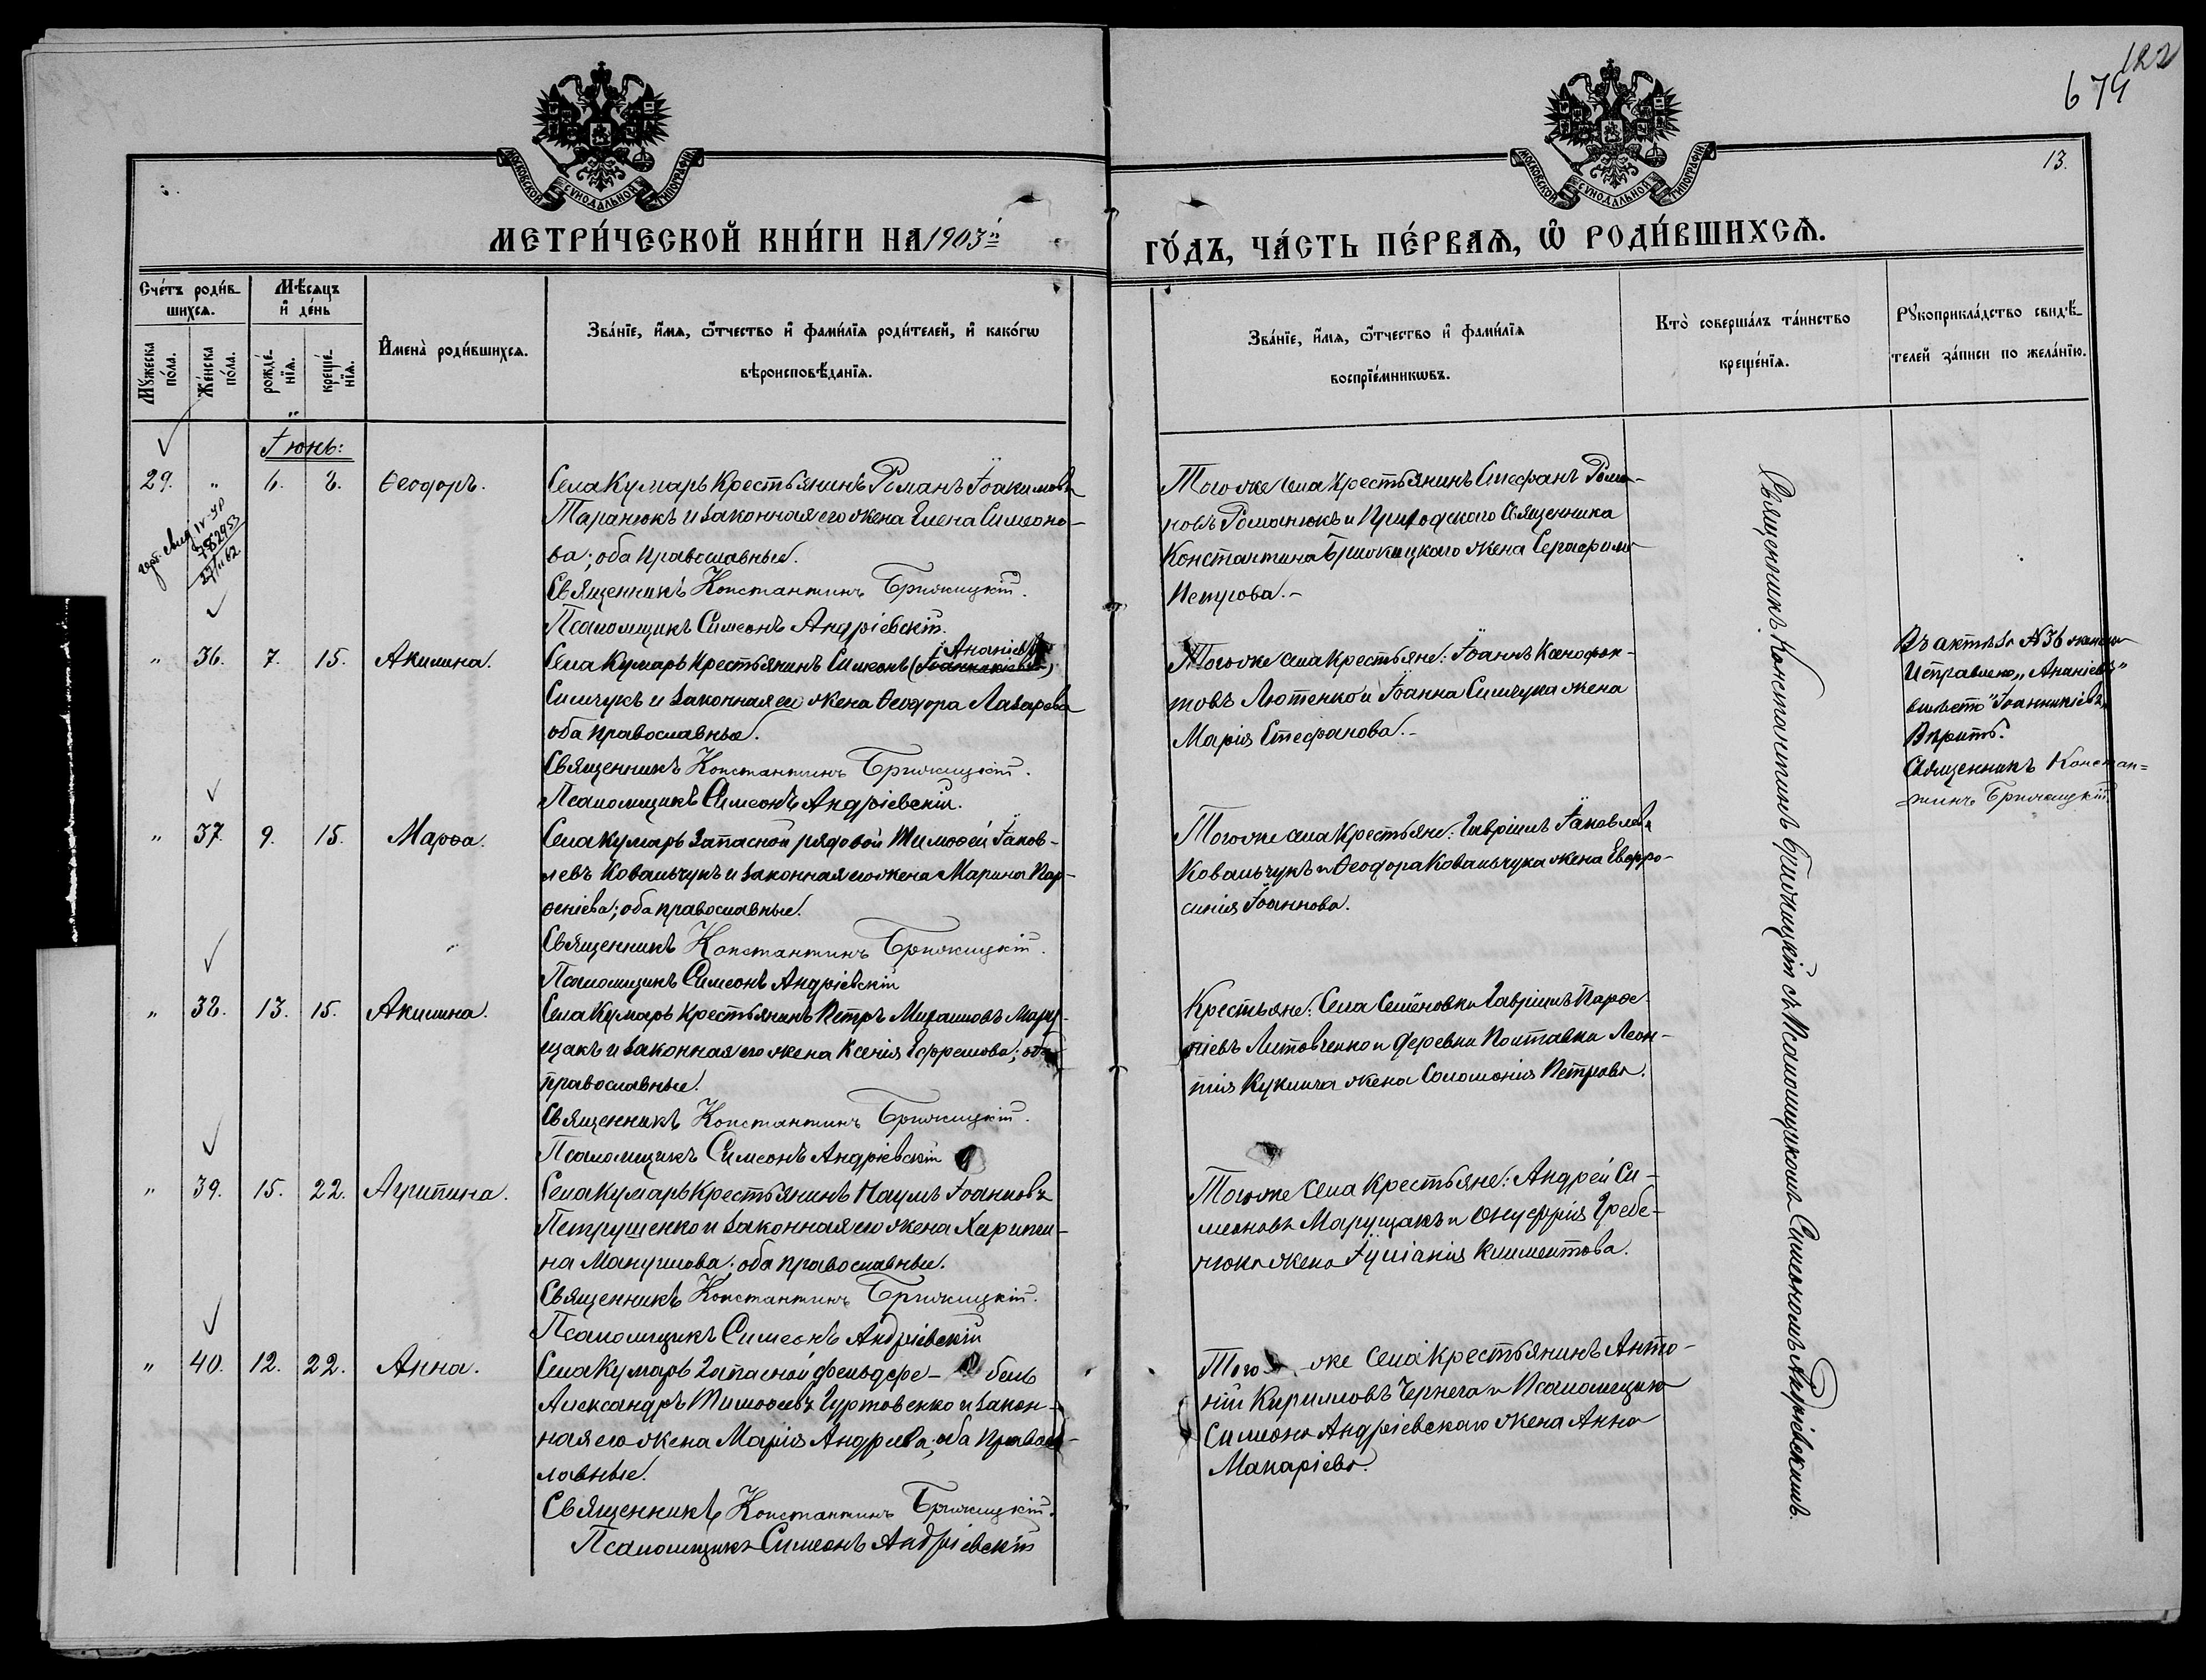 122
674
13.
МОСКОВСКОЙ СѴНОДАЛЬНОЙ ТИПОГРАФІИ
МОСКОВСКОЙ СѴНОДАЛЬНОЙ ТИПОГРАФІИ
МЕТРИ́ЧЕСКОЙ КНИ́ГИ НА 1903й
ГО́ДЪ, ЧА́СТЬ ПЕ́РВАѦ, Ѡ҆ РОДИ́ВШИХСѦ.
Сче́тъ роди́в-
шихсѧ.
Мѣ́сѧцъ
и҆ де́нь
Мꙋ́жеска
по́ла.
Же́нска
по́ла.
рожде́-
нїѧ.
креще́-
нїѧ.
И҆мена̀ роди́вшихсѧ.
Зва́нїе, и҆́мѧ, ѻ҆́тчество и҆ фами́лїѧ роди́телей, и҆ како́гѡ
вѣроисповѣ́данїѧ.
Зва́нїе, и҆́мѧ, ѻ҆́тчество и҆ фами́лїѧ
воспрїе́мникѡвъ.
Кто̀ соверша́лъ та́инство
креще́нїѧ.
Рꙋкоприкла́дство свидѣ́-
телей за́писи по жела́нїю.
Іюнь:
29. " 6. 8. Ѳеодоръ.
Села Кумаръ Крестьянинъ Романъ Іоакимовъ
Таранюкъ и законная его жена Елена Симеоно-
ва; оба православные.
Священникъ Константинъ Бржицкій.
Псаломщикъ Симеонъ Андріевскій.
Того же села крестьянинъ Стефанъ Рома-
новъ Романюкъ и Приходскаго Священника
Константина жена Серафима
Петрова.-
" 36. 7. 15. Акилина.
Ананіевъ
Села Кумаръ Крестьянинъ Симеонъ (Іоанникіевъ)
Симчукъ и законная его жена Ѳеодора Лазарева
оба православные.
Священникъ Константинъ
Псаломщикъ Симеонъ Андріевскій.
Того же села крестьяне: Іоаннъ Ксенофон-
товъ Лютенко и Іоанна Симчука жена
Марія Стефанова.-
Въ актѣ за № 36
Исправлено "Ананіевъ"
вмѣсто "Іоанникіевъ"
Вѣрить.
Священникъ Констан=
тинъ
" 37. 9. 15. Марѳа.
Села Кумаръ Запасной рядовой Тимоѳей Іаков-
левъ Ковальчукъ и законная его жена Марина Пар-
ѳеніева; оба православные.
Священникъ Константинъ
Псаломщикъ Симеонъ Андріевскій
Того же села крестьяне: Гавріилъ Іаковлевъ
Ковальчукъ и Ѳеодора Ковальчука жена Евфро-
синія Іоаннова.
" 38. 13. 15. Акилина.
Села Кумаръ Крестьянинъ Петръ Михаиловъ Мару-
щакъ и законная его жена Ксенія Ефремова; оба
православные.
Священникъ Константинъ
Псаломщикъ Симеонъ Андріевскій
Крестьяне: Села Семёновки Гавріилъ Парѳе-
ніевъ Литовченко и деревни Полтавки Леон-
тія жена Соломонія Петрова.
" 39. 15. 22. Агрипина.
Села Кумаръ Крестьянинъ Наумъ Іоанновъ
Петрушенко и законная его жена Харити-
на Мануилова; оба православные.
Священникъ Константинъ
Псаломщикъ Симеонъ Андріевскій
Того же села крестьяне: Андрей Си-
меоновъ Марущакъ и Онуфрія Гребе-
нюка жена Іуліанія Климентова.
" 40. 12. 22. Анна.
Села Кумаръ Запасной фельдфе- бель
Александръ Тимоѳеевъ Гуртовенко и закон-
ная его жена Марія Андреева; оба правос-
лавные.
Священникъ Константинъ
Псаломщикъ Симеонъ Андріевскій
Того же села крестьянинъ Анто-
ній Кирилловъ Чернега и Псаломщика
Симеона Андріевскаго жена Анна
Макаріева.
Священникъ Константинъ съ Псаломщикомъ Симеономъ Андріевскимъ.